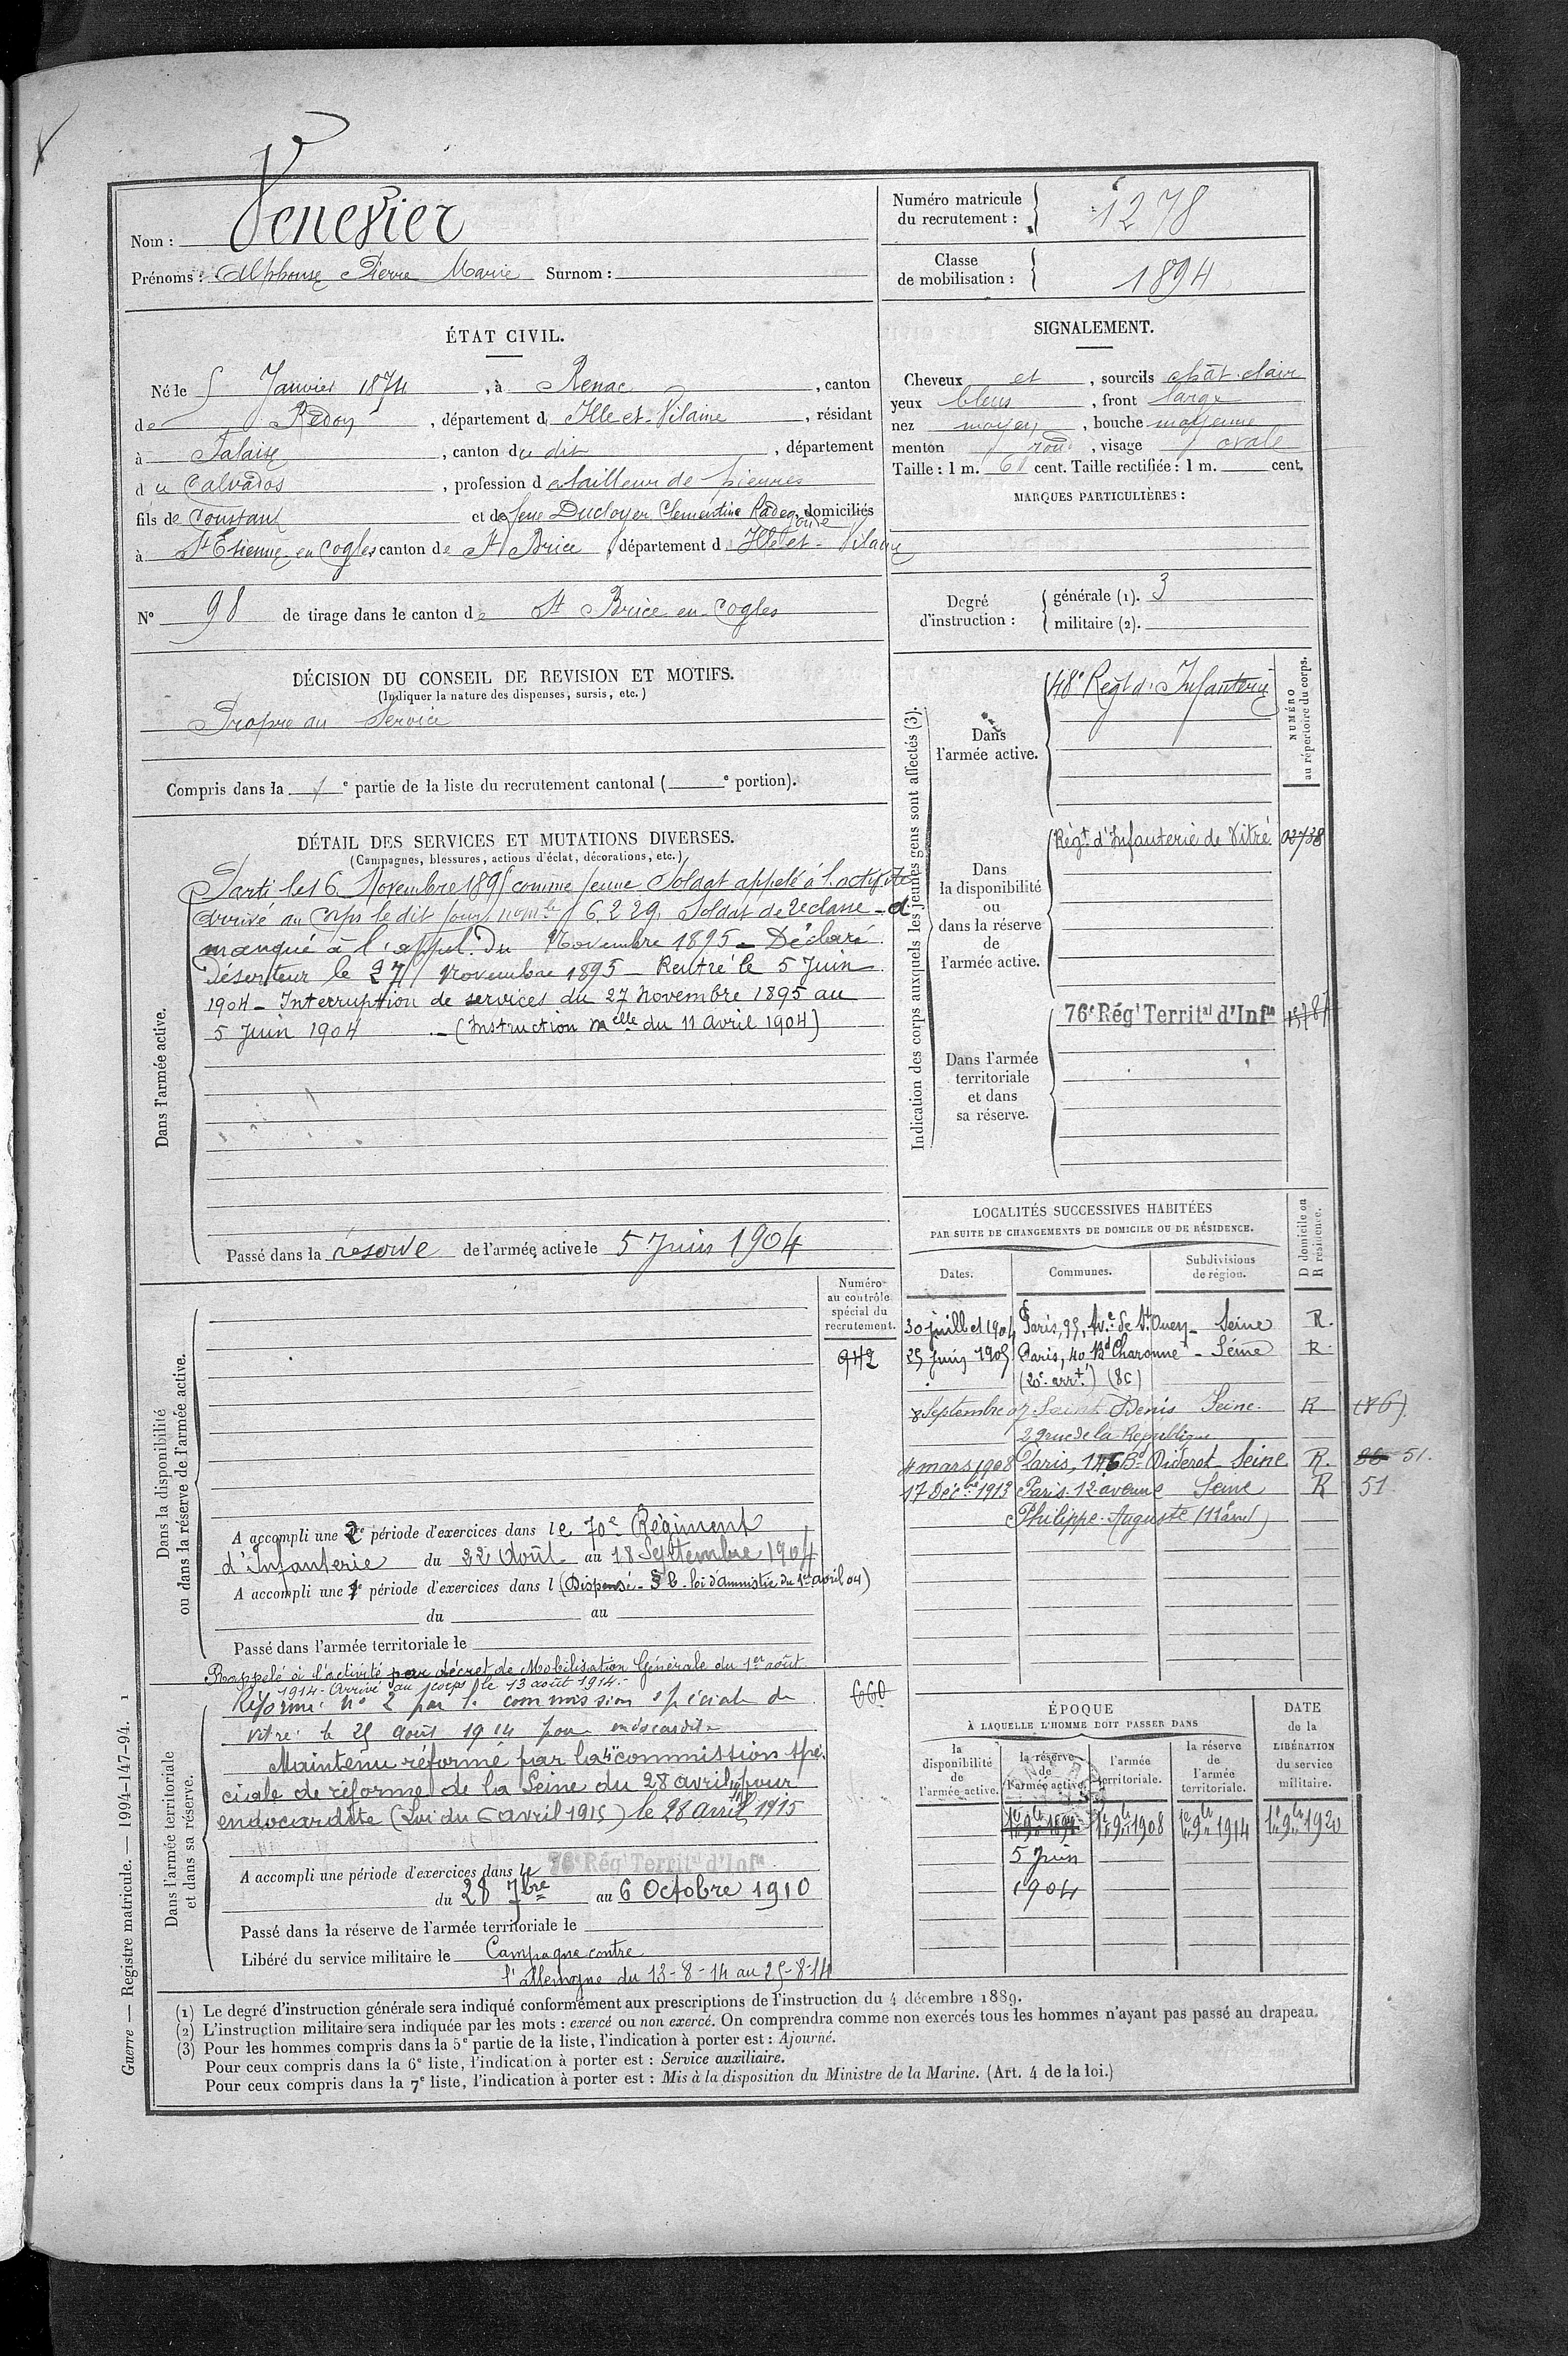 Nom : Venevier
Prénoms : Alphonse Pierre Marie Surnom :
Numéro matricule du recrutement : 1278
Classe de mobilisation : 1894
ÉTAT CIVIL.
Né le 5 Janvier 1874, à Renac, canton
de Redon, département d Ille et Vilaine, résidant
à Falaise, canton du dit, département
du Calvados, profession de tailleur de pierres
fils de Constant et de feue Ducloyer Clémentine Radegonde, domiciliés
à St Etienne en Cogles canton de St Brice, département d Ille et Vilaine
N° 98 de tirage dans le canton de St Brice en Cogles
SIGNALEMENT.
Cheveux et, sourcils chât. clair
yeux bleus, front large
nez moyen, bouche moyenne
menton rond, visage ovale
Taille : 1 m. 61 cent. Taille rectifiée : 1 m. cent.
MARQUES PARTICULIÈRES :
Degré d'instruction : générale (1). 3
militaire (2).
DÉCISION DU CONSEIL DE REVISION ET MOTIFS.
(Indiquer la nature des dispenses, sursis, etc.)
Propre au Service
Compris dans la 1e partie de la liste du recrutement cantonal ( e portion).
DÉTAIL DES SERVICES ET MUTATIONS DIVERSES.
(Campagnes, blessures, actions d'éclat, décorations, etc.)
Dans l'armée active.
Parti le 16 Novembre 1895 comme jeune Soldat appelé à l'activité
arrivé au Corps le dit jour, 6229, Soldat de 2e classe - a
manqué à l'appel du Novembre 1895 - Déclaré
déserteur le 27 Novembre 1895 - Rentré le 5 Juin
1904 - Interruption de services du 27 novembre 1895 au
5 Juin 1904 - (Instruction melle du 11 avril 1904)
Passé dans la réserve de l'armée active le 5 Juin 1904
Indication des corps auxquels les jeunes gens sont affectés (3).
NUMÉRO au répertoire du corps.
Dans l'armée active.
48e Régt d'Infanterie
Dans la disponibilité ou dans la réserve de l'armée active.
Régt d'Infanterie de Vitré 02738
Dans l'armée territoriale et dans sa réserve.
76e Régt Territal d'Infie
LOCALITÉS SUCCESSIVES HABITÉES
PAR SUITE DE CHANGEMENTS DE DOMICILE OU DE RÉSIDENCE.
Dates. Communes. Subdivisions de région. D domicile ou R résidence.
30 juillet 1904 Paris, 95, Ave de St Ouen - Seine R.
25 Juin 1905 Paris, 40 Bd Charonne - Seine R.
(20e arrt) (8C)
8 Septembre 07 Saint Denis Seine R (86)
29 rue de la République
4 mars 1908 Paris, 146 Bd Diderot Seine R. 86 51.
17 Décbre 1913 Paris 12 avenue Seine R 51
Philippe-Auguste (11e arrd)
Dans la disponibilité ou dans la réserve de l'armée active.
Numéro au contrôle spécial du recrutement.
942
A accompli une 2e période d'exercices dans le 70e Régiment
d'Infanterie du 22 Août au 18 Septembre 1904
A accompli une 1e période d'exercices dans l (Dispensé - § 6. loi d'amnistie du 1er avril 04)
du au
Passé dans l'armée territoriale le
Dans l'armée territoriale et dans sa réserve.
Rappelé à l'activité par décret de Mobilisation Générale du 1er août
1914 - Arrivé au corps le 13 août 1914.
Réformé n° 2 par la commission spéciale de
Vitré le 25 août 1914 pour endocardite
660
Maintenu réformé par la 4e commission spé-
ciale de réforme de la Seine du 28 avril pour
endocardite (Loi du 6 avril 1915) le 28 avril 1915
A accompli une période d'exercices dans le 76e Régt Territal d'Infie
du 28 7bre au 6 Octobre 1910
Passé dans la réserve de l'armée territoriale le
Libéré du service militaire le Campagne contre
l'allemagne du 13-8-14 au 25-8-14
ÉPOQUE
À LAQUELLE L'HOMME DOIT PASSER DANS
DATE de la LIBÉRATION du service militaire.
la disponibilité de l'armée active. la réserve de l'armée active. l'armée territoriale. la réserve de l'armée territoriale.
1er 9bre 1908 1er 9bre 1914 1er 9bre 1920
5 Juin
1904
(1) Le degré d'instruction générale sera indiqué conformément aux prescriptions de l'instruction du 4 décembre 1889.
(2) L'instruction militaire sera indiquée par les mots : exercé ou non exercé. On comprendra comme non exercés tous les hommes n'ayant pas passé au drapeau.
(3) Pour les hommes compris dans la 5e partie de la liste, l'indication à porter est : Ajourné.
Pour ceux compris dans la 6e liste, l'indication à porter est : Service auxiliaire.
Pour ceux compris dans la 7e liste, l'indication à porter est : Mis à la disposition du Ministre de la Marine. (Art. 4 de la loi.)
Guerre — Registre matricule. — 1994-147-94. 1